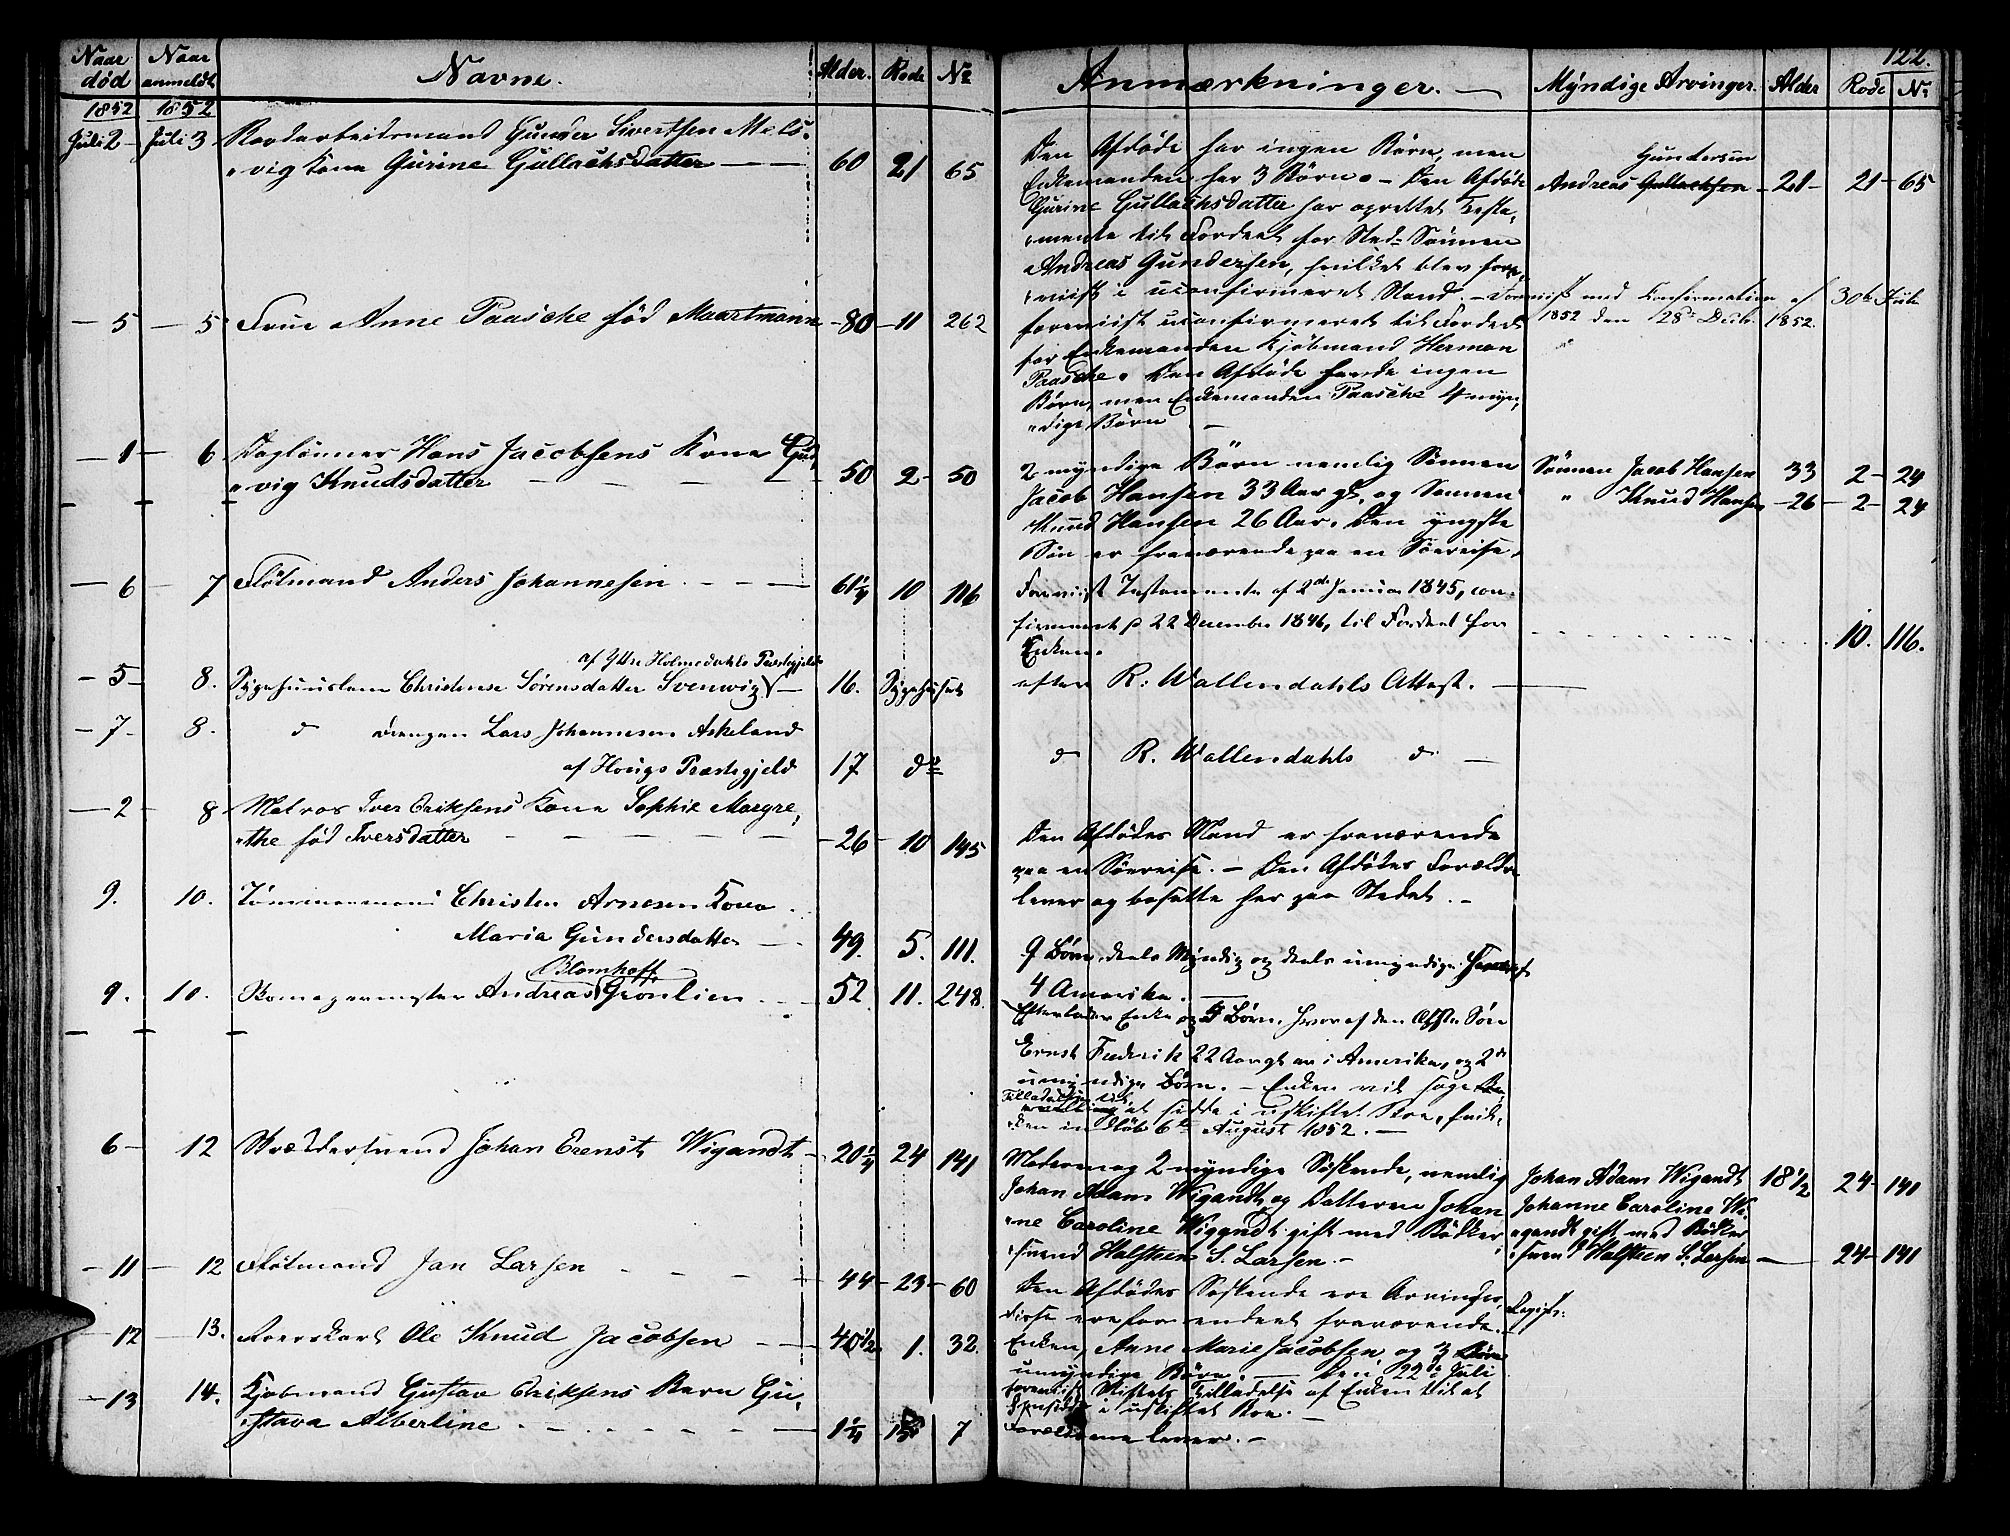 122.
Naar død
Naar anmeldt
Navne.
Alder.
Rode
No
Anmærkninger. —
Myndige Arvinger.
Alder
Rode
No
1852
1852
Juli 2 — Juli 3 Gunder Sivertsen Mels-
vig Kone Gurine Gullachsdatter — — 60 21 65
Den Afdøde har ingen Børn, men
Enkemanden har 3 Børn. — Den Afdøde
Gurine Gullachsdatter har oprettet Testa-
mente til Fordeel for Sted-Sønnen
Andreas Gundersen, hvilket blev fore-
viist i uconfirmeret Stand. — Foreviist med Confirmation af 30te Juli
1852 den 28de Decbr. 1852.
Gundersen
Andreas Gullachsen — 21 — 21 — 65
— 5 — 5 Frue Anne Paasche fød Maartmann — 80 — 11 262
foreviist uconfirmeret til Fordeel
for Enkemanden Kjøbmand Herman
Paasche. Den Afdøde havde ingen
Børn, men Enkemanden Paasche 4 myn-
dige Børn —
— 1 — 6 Daglønner Hans Jacobsens Kone Gud-
vig Knudsdatter — — — — 50 2 — 50
2 myndige Børn nemlig Sønnen
Jacob Hansen 33 Aar gl, og Sønnen
Knud Hansen 26 Aar. Den yngste
Søn er fraværende paa en Søereise.
Sønnen Jacob Hansen 33 2 — 24
" Knud Hansen — 26 — 2 — 24
— 6 — 7 Følmand Anders Johannesen - - - — 61¼ 10 116
Foreviist Testamente af 2den Januar 1845, con-
firmeret p 22 December 1846, til Fordeel for
Enken.
10. 116.
— 5 — 8. Christense Sørensdatter Svenvig — 16. Sygehuset
af Ytre Holmedahls Præstegjeld
efter R. Wallendahls Attest. —
— 7 — 8. do Drengen Lars Johannesen Askeland
af Hougs Præstegjeld 17 do
do R. Wallendahls do —
— 2 — 8 Matros Iver Eriksens Kone Sophie Margre-
the fød Iversdatter — — — — 26 — 10 145
Den Afdødes Mand er fraværende
paa en Søereise. — Den Afdødes Forældre
lever og bosatte her paa Stedet. —
9. 10. Tømmermand Christen Arnesen Kone
Maria Gundersdatter — 49. 5. 111.
9 Børn, deels Myndig og deels umyndige
4 Amerika.
9. 10. Andreas Grønlien - - 52 11. 248.
Blomhoff
Efterlader Enke og 5 Børn, hvoraf den Søn
Ernst Frederik 22 Aargl er i Amerika, og 2de
umyndige Børn. — Enken vil søge
Tilladelse til
at sidde i uskiftet Boe,
6te August 1852. —
6 — 12 Skræddersvend Johan Ernst Wigandt — 20¼ 24 141
Moderen og 2 myndige Søskende, nemlig
Johan Adam Wigandt og Datteren Johan-
ne Caroline Wigandt gift med Bødker-
svend Halsteen S. Larsen. —
Johan Adam Wigandt 18½ 24 — 141
Johanne Caroline Wi-
gandt gift med Bødker-
svend Halsteen S. Larsen — 24 — 141
— 11 — 12 Følmand Jan Larsen - - - - 44 — 23 — 60
Den Afdødes Søskende ere Arvinger,
disse ere for endeel fraværende. —
— 12 — 13. Ole Knud Jacobsen — — 40½ 1. 32.
Enken, Anne Marie Jacobsen og 3
umyndige Børn. — Den 22de Juli
foreviist Skiftets Tilladelse af Enken til at
hensidde i uskiftet Boe. —
— 13 14. Kjøbmand Gustav Eriksens Barn Gu-
stava Albertine - - - - 1¼ 7
Forældrene lever. —